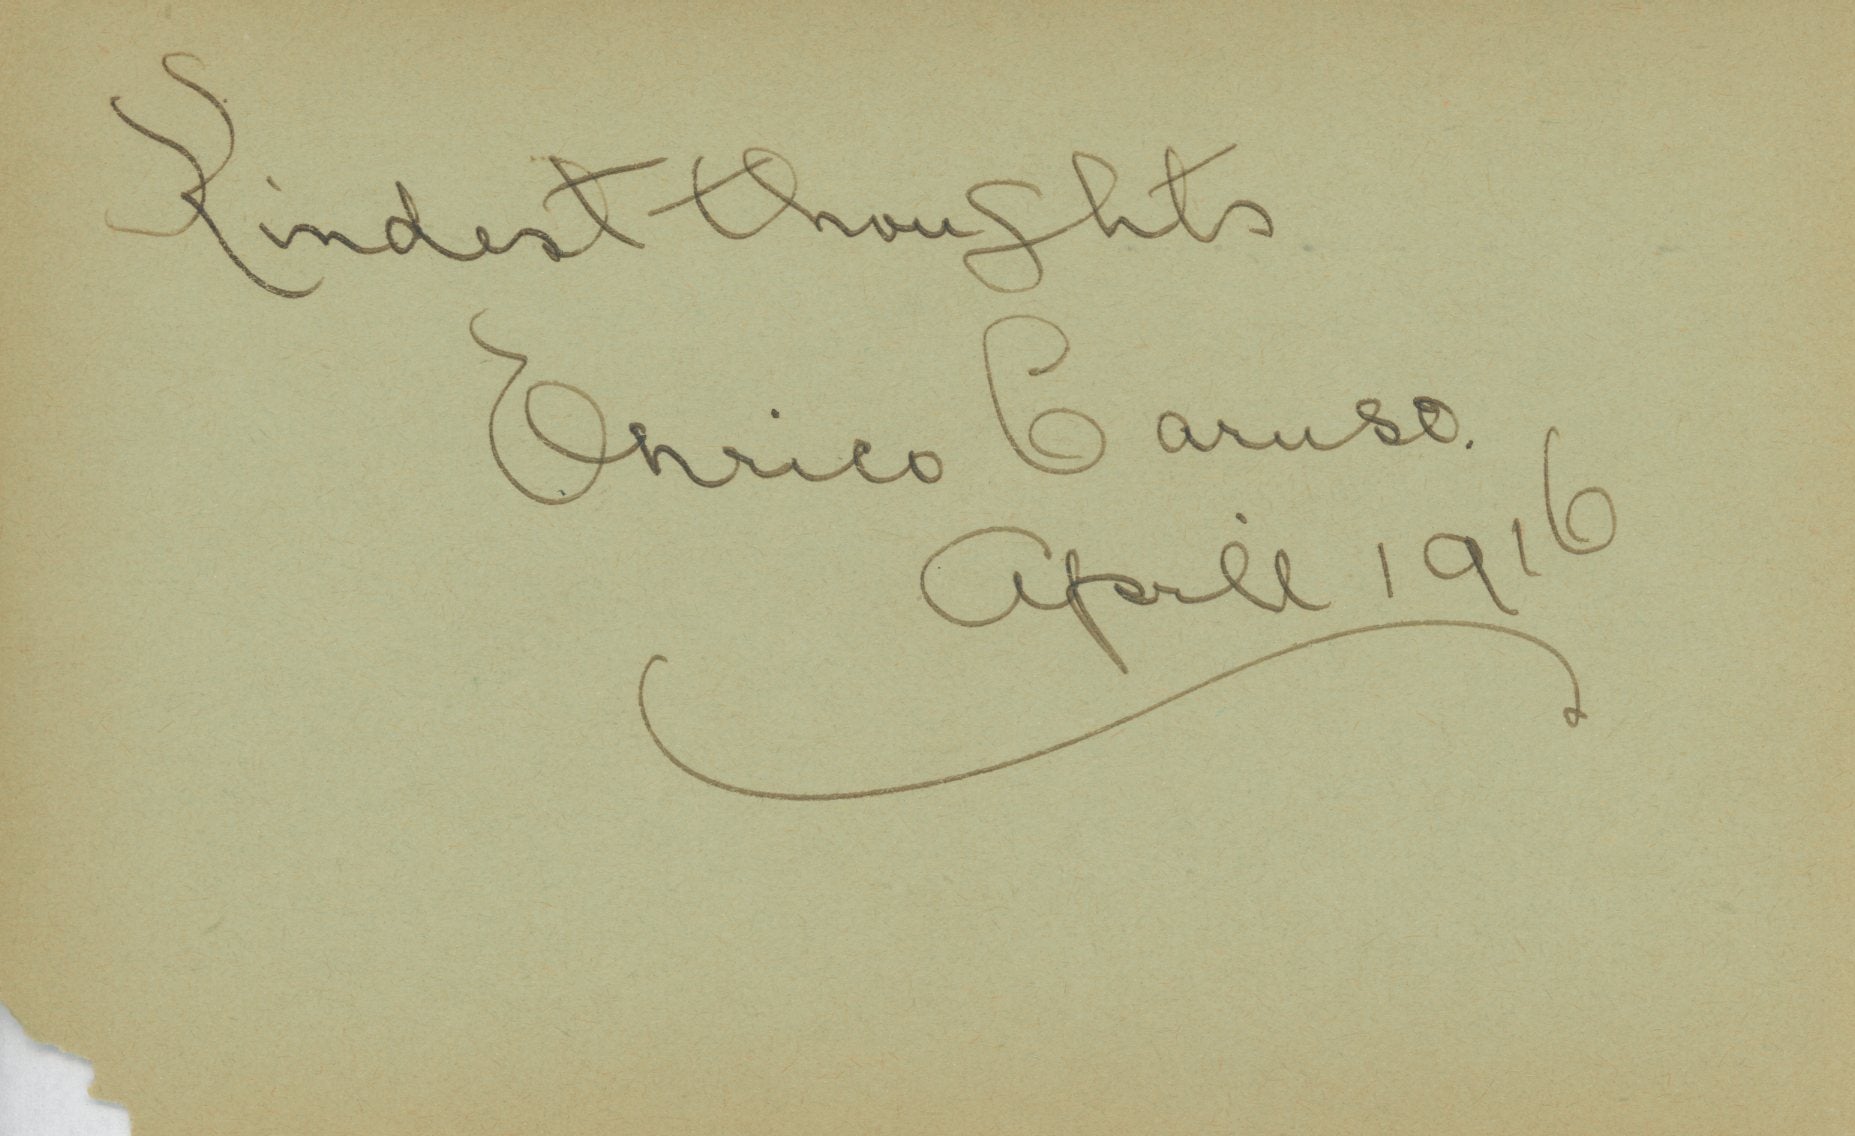 Kindest thoughts
Enrico Caruso.
April 1916